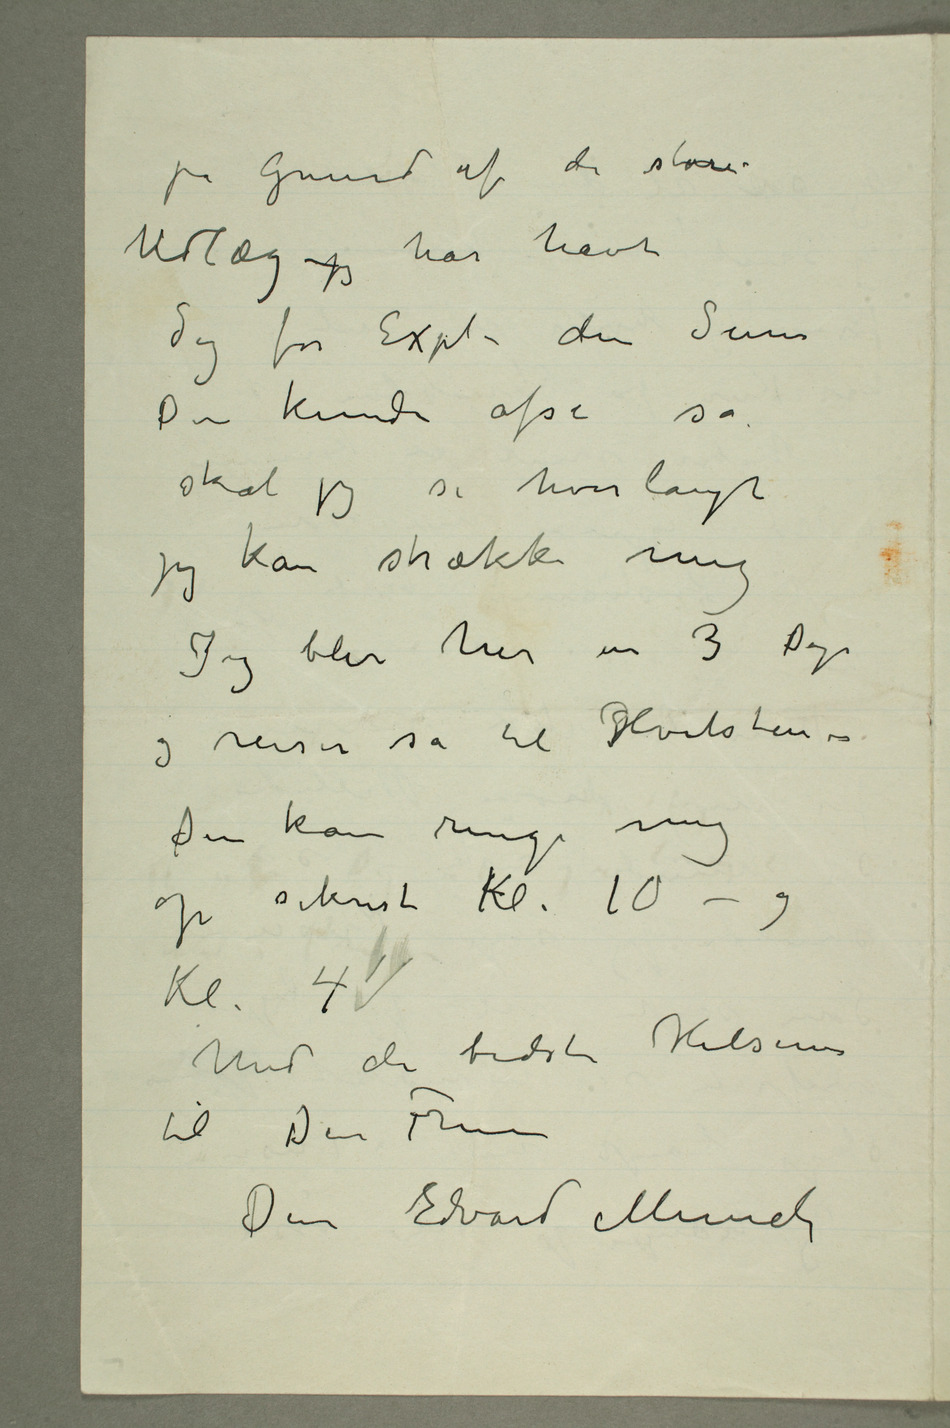 på Grund af de store
Udlæg jeg har havt
Sig for Expl. den Sum
Du kunde afse så
skal jeg se hvor langt
jeg kan strække mig
Jeg blir her en 3 Dage
og reiser så til Hvitsten –
Du kan ringe mig
op sikrest Kl. 10 – og
Kl. 4
Med de bedste Hilsener
til Din Frue
Din Edvard Munch